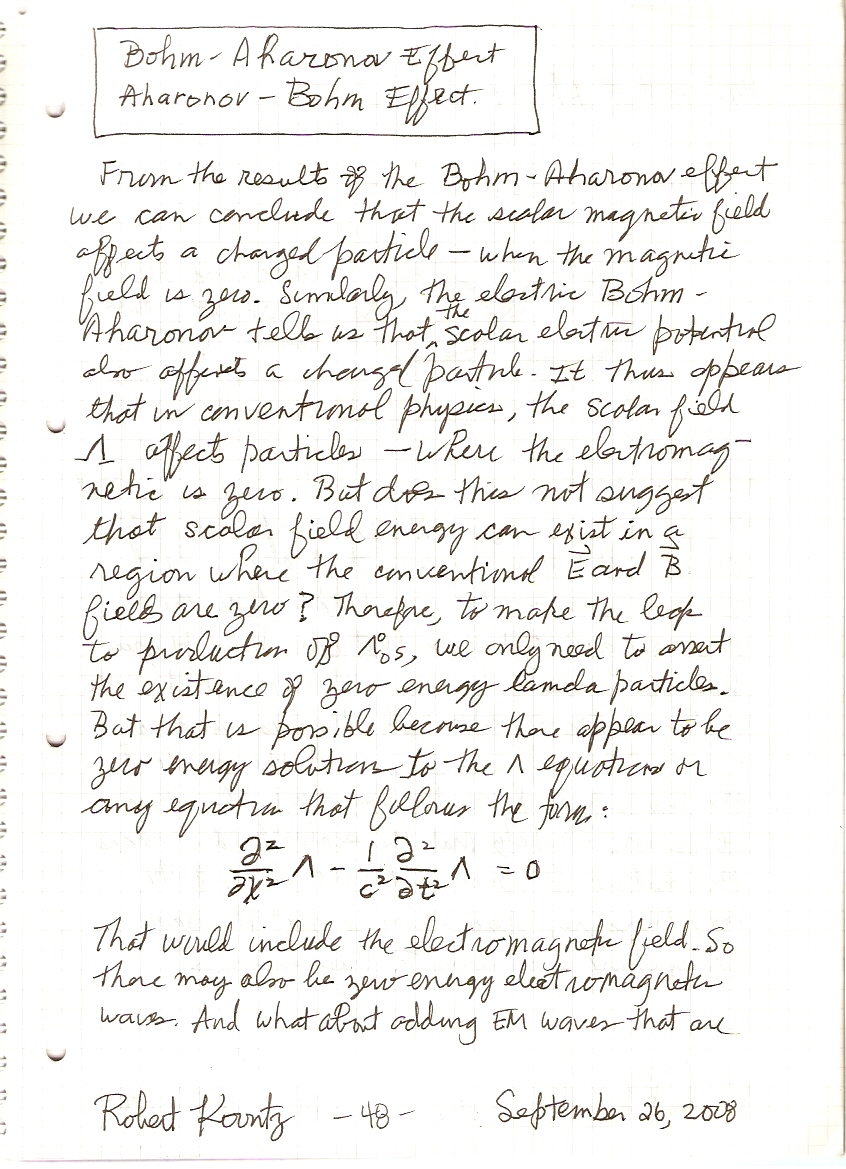 Bohm-Aharonov Effect
Aharonov-Bohm Effect.
From the results of the Bohm-Aharonov effect
we can conclude that the scalar magnetic field
affects a charged particle - when the magnetic
field is zero. Similarly, the electric Bohm-
Aharonov tells us that the scalar electric potential
also affects a charged particle. It thus appears
that in conventional physics, the scalar field
Λ affects particles - where the electromag-
netic is zero. But does this not suggest
that scalar field energy can exist in a
region where the conventional E⃗ and B⃗
fields are zero? Therefore, to make the leap
to production of Λ⁰s, we only need to assert
the existence of zero energy lamda particles.
But that is possible because there appear to be
zero energy solutions to the Λ equations or
any equation that follows the form:
∂²/∂x² Λ - 1/c² ∂²/∂t² Λ = 0
That would include the electromagnetic field. So
there may also be zero energy electromagnetic
waves. And what about adding EM waves that are
Robert Koontz - 48 - September 26, 2008